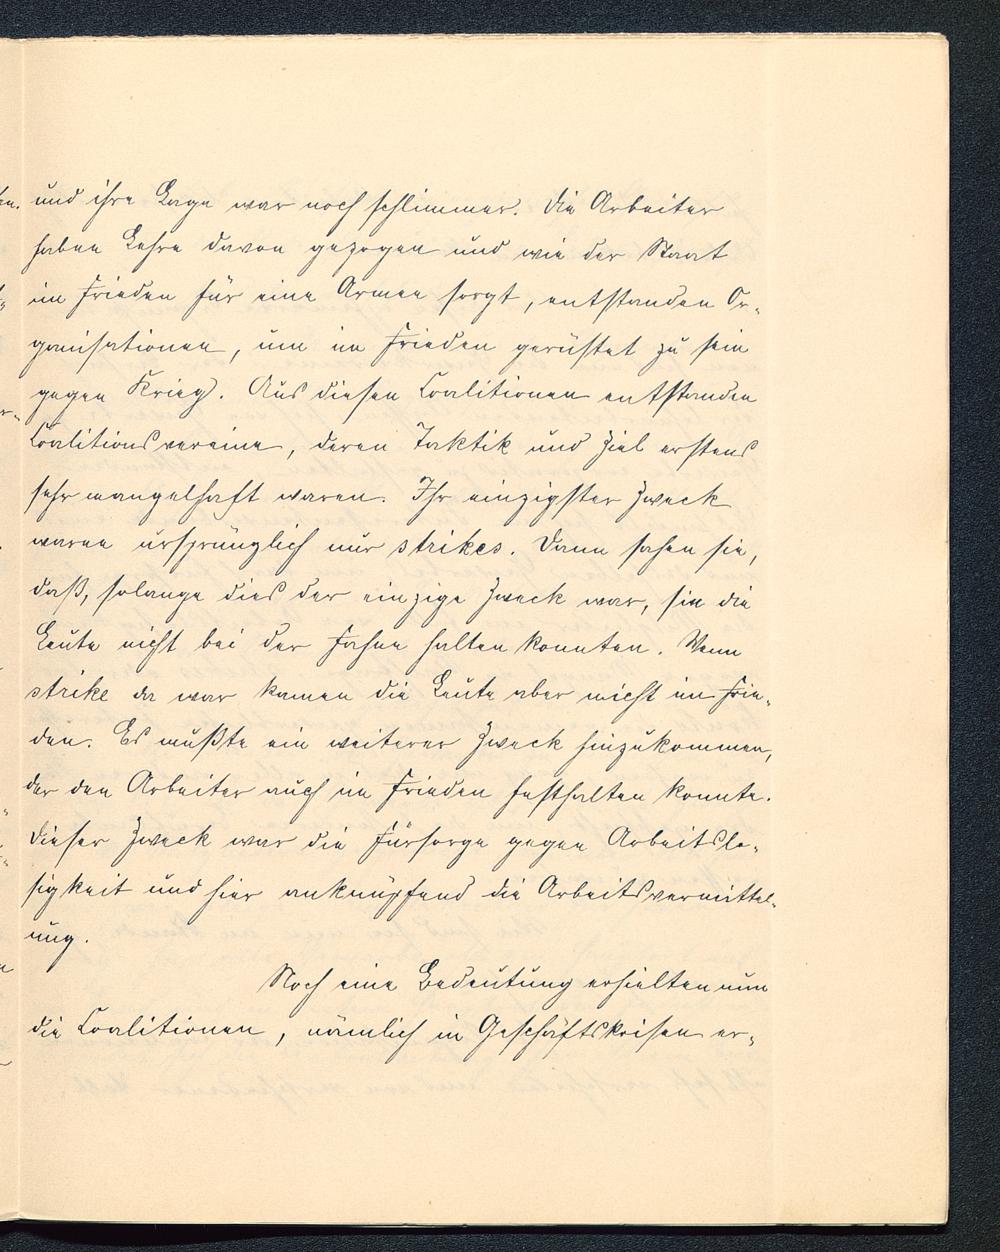 und ihre Lage war noch schlimmer. Die Arbeiter
haben Lehre davon gezogen und wie der Staat
im Frieden für eine Armee sorgt, entstanden Or-
ganisationen, um im Frieden gerüstet zu sein
gegen Krieg. Aus diesen Coalitionen entstanden
Coalitionsvereine, deren Taktik und Ziel erstens
sehr mangelhaft waren. Ihr einzigster Zweck
waren ursprünglich nur strikes. Dann sahen sie,
daß, solange dies der einzige Zweck war, sie die
Leute nicht bei der Fahne halten konnten. Wenn
strike da war kamen die Leute aber nicht im Frie-
den. Es mußte ein weiterer Zweck hinzukommen,
der den Arbeiter auch im Frieden festhalten konnte.
Dieser Zweck war die Fürsorge gegen Arbeitslo-
sigkeit und hier anknüpfend die Arbeitsvermittel-
ung.
Noch eine Bedeutung erhielten nun
die Coalitionen, nämlich in Geschäftskrisen er-